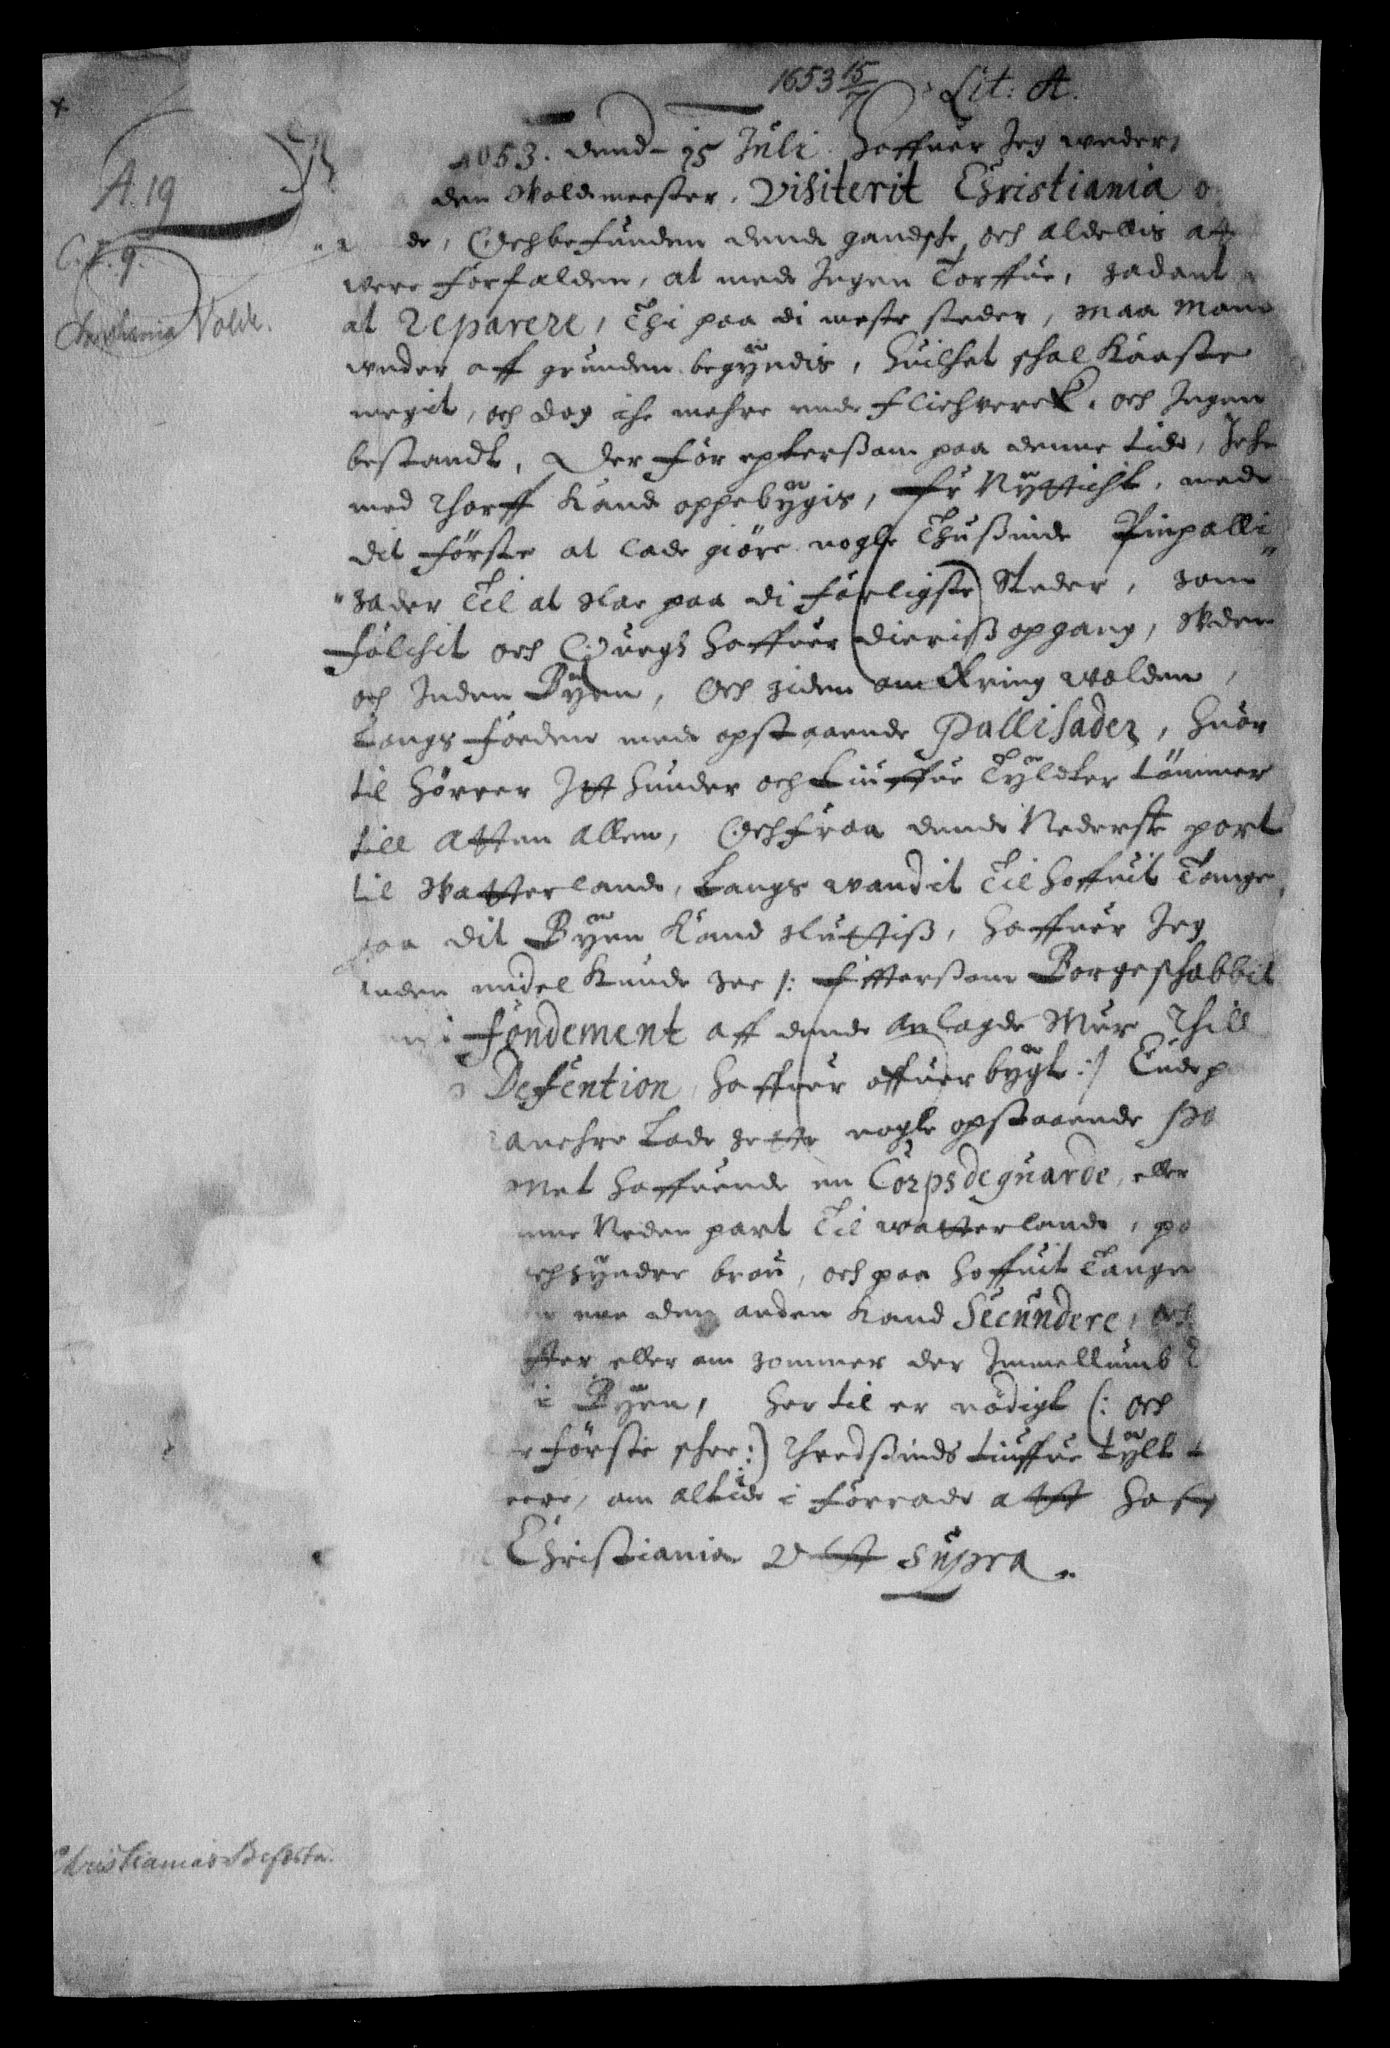 1653 15/7 Lit: A.
A. 19
C. F. 9.
Christiania Volde.
1653. dend 15 Juli. Haffuer Jeg
den Woldmeester, Visiterit Christiania
de, Och befunden dend gandske och aldellis
were forfalden, at med Ingen Torffue, sadant
at Reparere, Thi paa di meste steder, maa Mand
under aff grunden begyndis, huilket skal Kaaste
megit, och dog iche mehre end Flichverck, och Ingen
bestandt, Der för epterssom paa denne tid, Iche
med Thorff Kand oppebygis, Er Nyttight, med
dit förste at lade giöre nogle Thussinde Pinpalli
zader Til at slae paa di farligste Steder, som
Folchit och Quegh haffuer dieriss opgang, Uden
och Inden Byen, Och siden omkring wolden,
Langs Foeden med opstaaende Pallisader, huor
til hörrer Itt hunder och tiuffue Tylter tömmer
till Atten Allen, Och fraa dend Nederste port
til Watterland, Langs wandit Til hoffuit Tange,
paa dit Byen Kand sluttiss, haffuer Jeg
anden midel Kunde see /: Effterssom Borgeskabbit
Fondement aff dend Anlagde Mur Thill
Defention haffuer offuerbygt :/
lade sette nogle opstaaende
Met haffuende en Corpsdeguarde, eller
Neder part Til watterland,
syndre broe, och paa hoffuit Tangen
den anden Kand Secundere,
eller om sommer der Immellumb
i Byen, her til er nödigt (: och
förste skee :) Thredssinds tiuffue tylt
om altid i förraad att haffue
Christiania Utt Supra.
Christianias Befæstn.